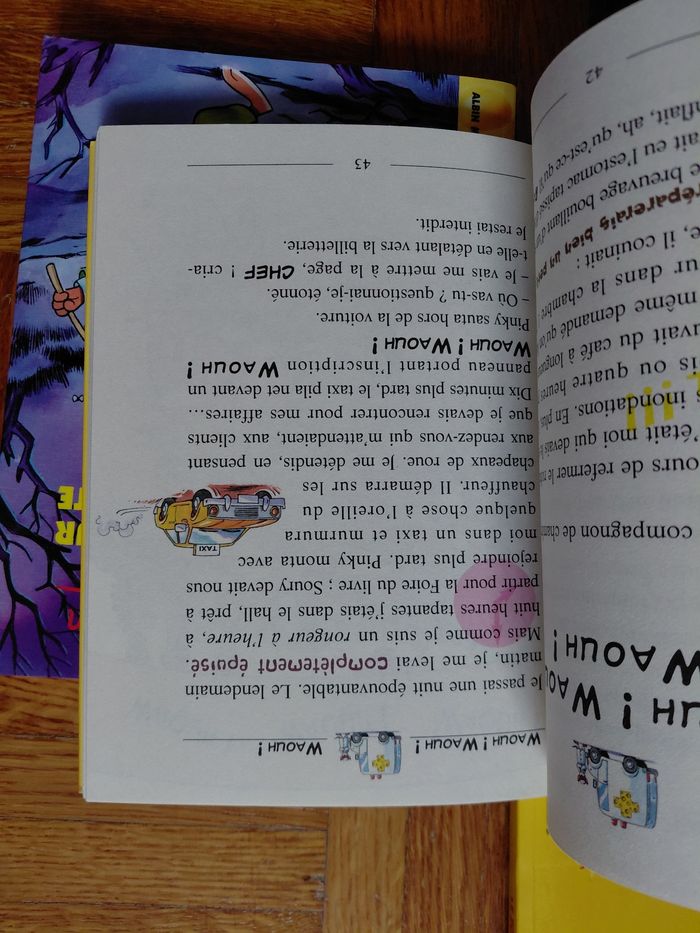 WAOUH ! WAOUH ! WAOUH !
Je passai une nuit épouvantable. Le lendemain
matin, je me levai complètement épuisé.
Mais comme je suis un rongeur à l'heure, à
huit heures tapantes j'étais dans le hall, prêt à
partir pour la Foire du livre ; Soury devait nous
rejoindre plus tard. Pinky monta avec
moi dans un taxi et murmura
quelque chose à l'oreille du
chauffeur. Il démarra sur les
chapeaux de roue. Je me détendis, en pensant
aux rendez-vous qui m'attendaient, aux clients
que je devais rencontrer pour mes affaires…
Dix minutes plus tard, le taxi pila net devant un
panneau portant l'inscription WAOUH !
WAOUH ! WAOUH !
Pinky sauta hors de la voiture.
– Où vas-tu ? questionnai-je, étonné.
– Je vais me mettre à la page, CHEF ! cria-
t-elle en détalant vers la billetterie.
Je restai interdit.
43
TAXI
WAOUH !
compagnon de
de refermer le
'était moi qui devais
inondations. En plus
ou quatre heures
du café à
même demandé
dans la chambre :
il couinait :
bien un
breuvage bouillant
eu l'estomac
ah, qu'est-ce
42
ALBIN